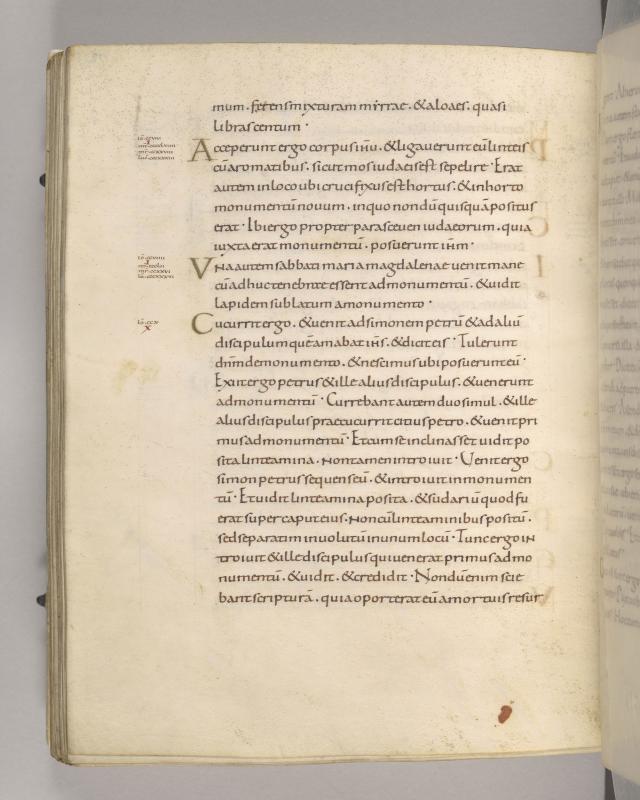 mum. ferens mixturam mirrae. & aloaes. quasi
libras centum.
Acceperunt ergo corpus ihu. & ligaverunt eū linteis
cū aromatibus. sicut mos iudaeis est sepelire. Erat
autem in loco ubi crucifixus est hortus. & in horto
monumentū novum. in quo nondū quisquā positus
erat. Ibi ergo propter parasceven iudaeorum. quia
iuxta erat monumentū. posuerunt ihm.
Una autem sabbati maria magdalenae venit mane
cū adhuc tenebrae essent ad monumentū. & uidit
lapidem sublatum a monumento.
Cucurrit ergo. & venit ad simonem petrū & ad aliū
discipulum quē amabat ihs. & dicit eis. Tulerunt
dnm de monumento. & nescimus ubi posuerunt eū.
Exiit ergo petrus & ille alius discipulus. & venerunt
ad monumentū. Currebant autem duo simul. & ille
alius discipulus praecucurrit citius petro. & venit pri
mus ad monumentū. Et cum se inclinasset uidit po
sita linteamina. non tamen introivit. Venit ergo
simon petrus sequens eū. & introivit in monumen
tū. Et vidit linteamina posita. & sudariū quod fu
erat super caput eius. non cū linteaminibus positū.
sed separatim involutū in unum locū. Tunc ergo in
troivit & ille discipulus qui venerat primus ad mo
numentū. & vidit. & credidit. Nondū enim scie
bant scripturā. quia oporteret eū a mortuis resur